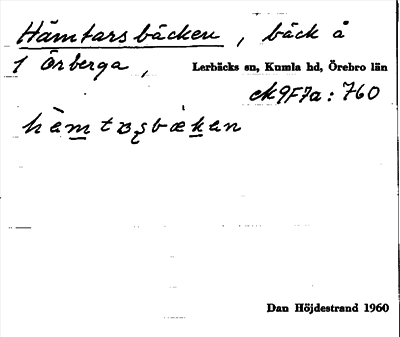 Hämtarsbäcken, bäck å
1 Örberga, Lerbäcks sn, Kumla hd, Örebro län
ek 9F7a: 760
Dan Höjdestrand 1960